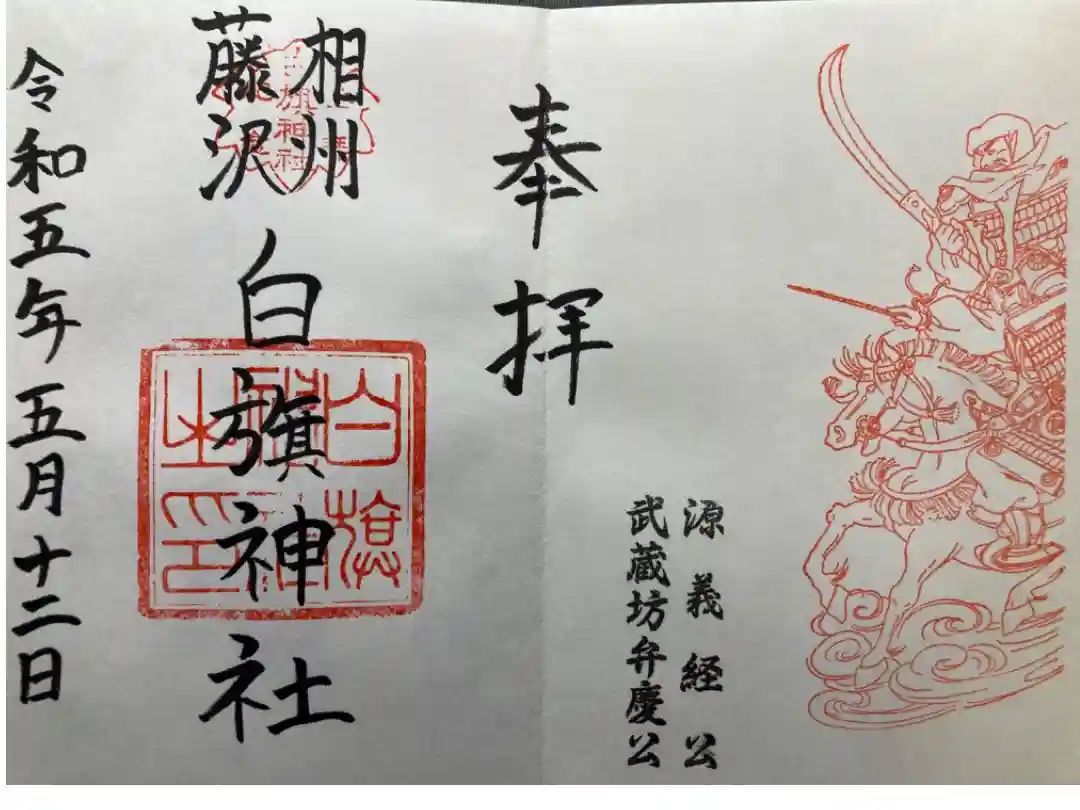 源義経公
武蔵坊弁慶公
奉拝
相州
藤沢
白旗神社
白旗神社
令和五年五月十二日